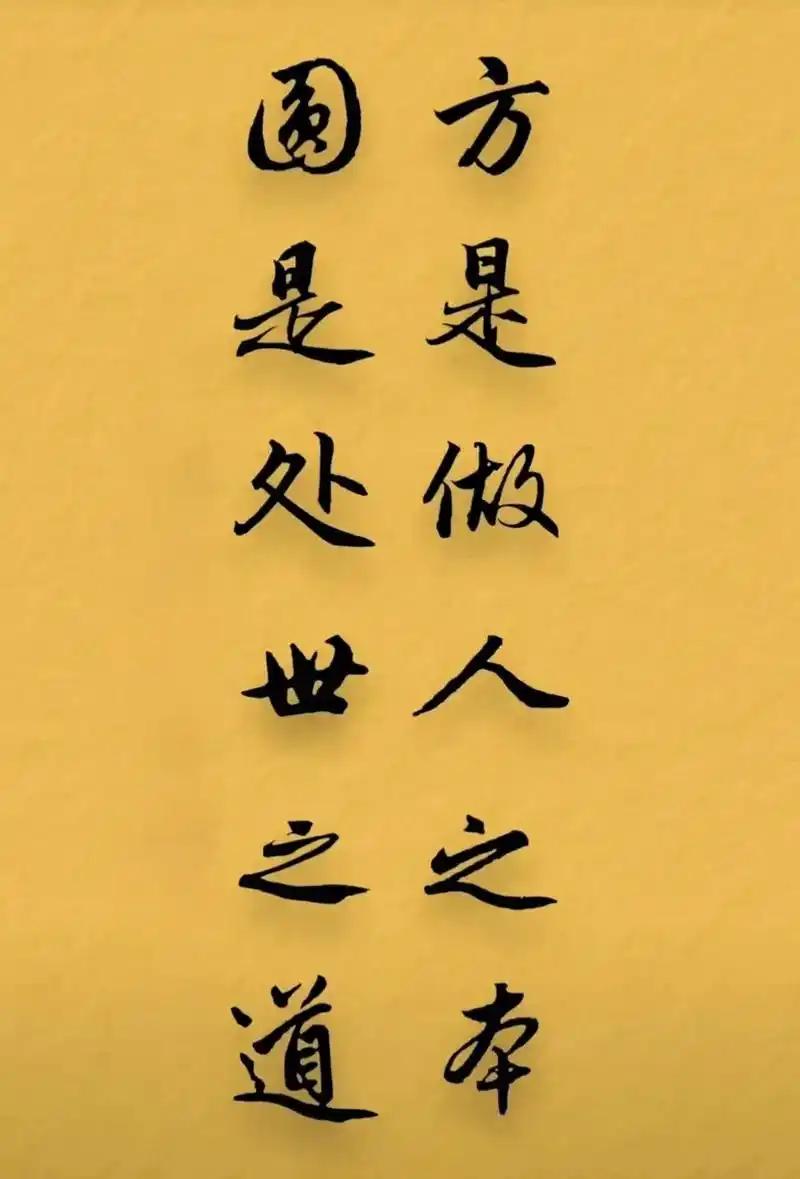 方是做人之本
圆是处世之道